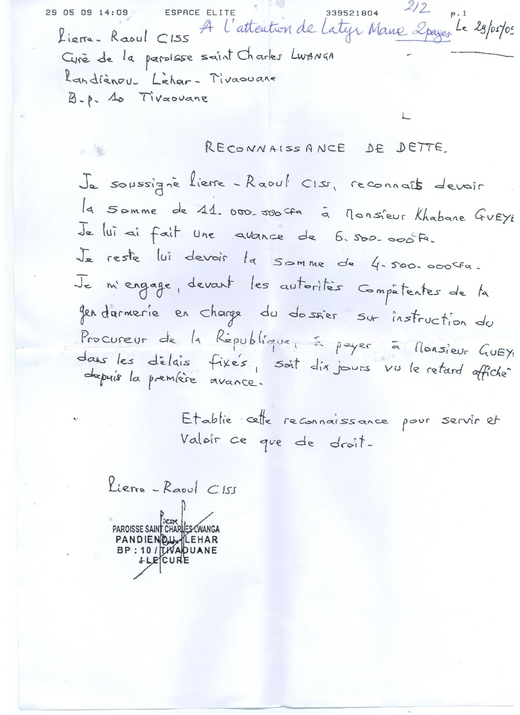 29 05 09 14:09 ESPACE ELITE 339521804 2/2 p.1
A l'attention de Latyr Mane 2pages Le 29/05/09
Pierre - Raoul CISS
Curé de la paroisse saint Charles LWANGA
Pandiénou - Léhar - Tivaouane
B.p. 10 Tivaouane
RECONNAISSANCE DE DETTE.
Je soussigné Pierre - Raoul CISS, reconnais devoir
la somme de 11.000.000cfa à Monsieur Khabane GUEYE
Je lui ai fait une avance de 6.500.000cfa.
Je reste lui devoir la somme de 4.500.000cfa.
Je m'engage, devant les autorités compétentes de la
gendarmerie en charge du dossier sur instruction du
Procureur de la République, à payer à Monsieur GUEY
dans les délais fixés, soit dix jours vu le retard affiché
depuis la première avance.
Etablie cette reconnaissance pour servir et
valoir ce que de droit.
Pierre - Raoul CISS
PAROISSE SAINT CHARLES LWANGA
PANDIENOU - LEHAR
BP : 10 / TIVAOUANE
LE CURE